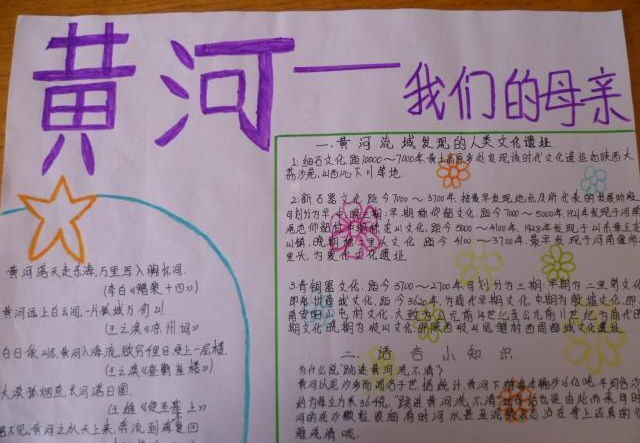 黄河——我们的母亲
一、黄河流域发现的人类文化遗址
1.细石文化,距10000～7000年,黄土高原多处发现该时代文化遗址如陕西大
荔沙苑,山西沁下川等地.
2.新石器文化,距今7000～3700年.
可划分为早中晚三期:早期称仰韶文化,距今7000～5000年,1921年发现于河南
渑池仰韶村,中期称龙山文化,距今5000～4100年,1928年发现于山东章丘龙
山镇,晚期称二里头文化,距今4100～3700年,最早发现于河南偃师
里头,为夏代文化遗址
3.青铜器文化,距今3700～2700年,可划分为三期:早期为二里岗文化
即郑州商城文化,距今3620年,为商代早期文化,中期为殷墟文化,即
南安阳小屯村文化,大致为公元前14世纪至公元前11世纪为商代晚
期文化,晚期为岐山文化,即陕西岐山凤雏村西周都城文化遗址
二、语言小知识
为什么说"跳进黄河洗不清"?
黄河以泥沙多而闻名于世,据统计,黄河下游年
约为每立方米36.4克."跳进黄河洗不清"
河的泥沙颗粒很细,有时河水甚至
难洗清呢.
黄河落天走东海,万里写入胸怀间.
(李白《赠裴十四》)
黄河远上白云间,一片孤城万仞山
(王之涣《凉州词》
白日依山尽,黄河入海流,欲穷千里目,更上一层楼.
(王之涣《登鹳雀楼》)
大漠孤烟直,长河落日圆.
(王维《使至塞上》
不见,黄河之水天上来,奔流到海不复回